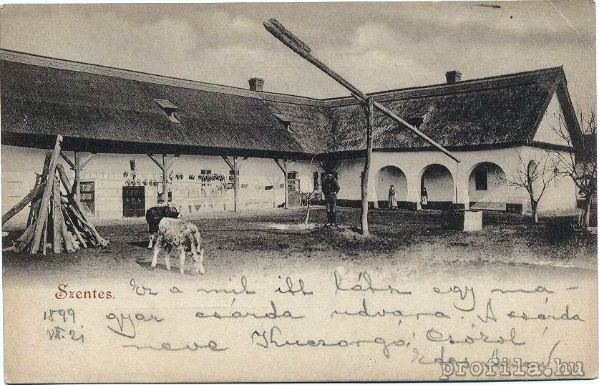 Szentes.
Ez a mit itt látsz egy ma-
1899 gyar csárda udvara A csárda
VII. 21 neve Kuczorgó, Csókol
Édes
profila.hu